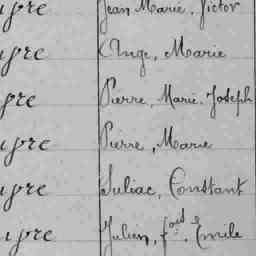 upre Jean Marie, Victor
upre Ange, Marie
pre Pierre, Marie, Joseph
upre Pierre, Marie
upre Suliac, Constant
upre Julien, fois, Emile